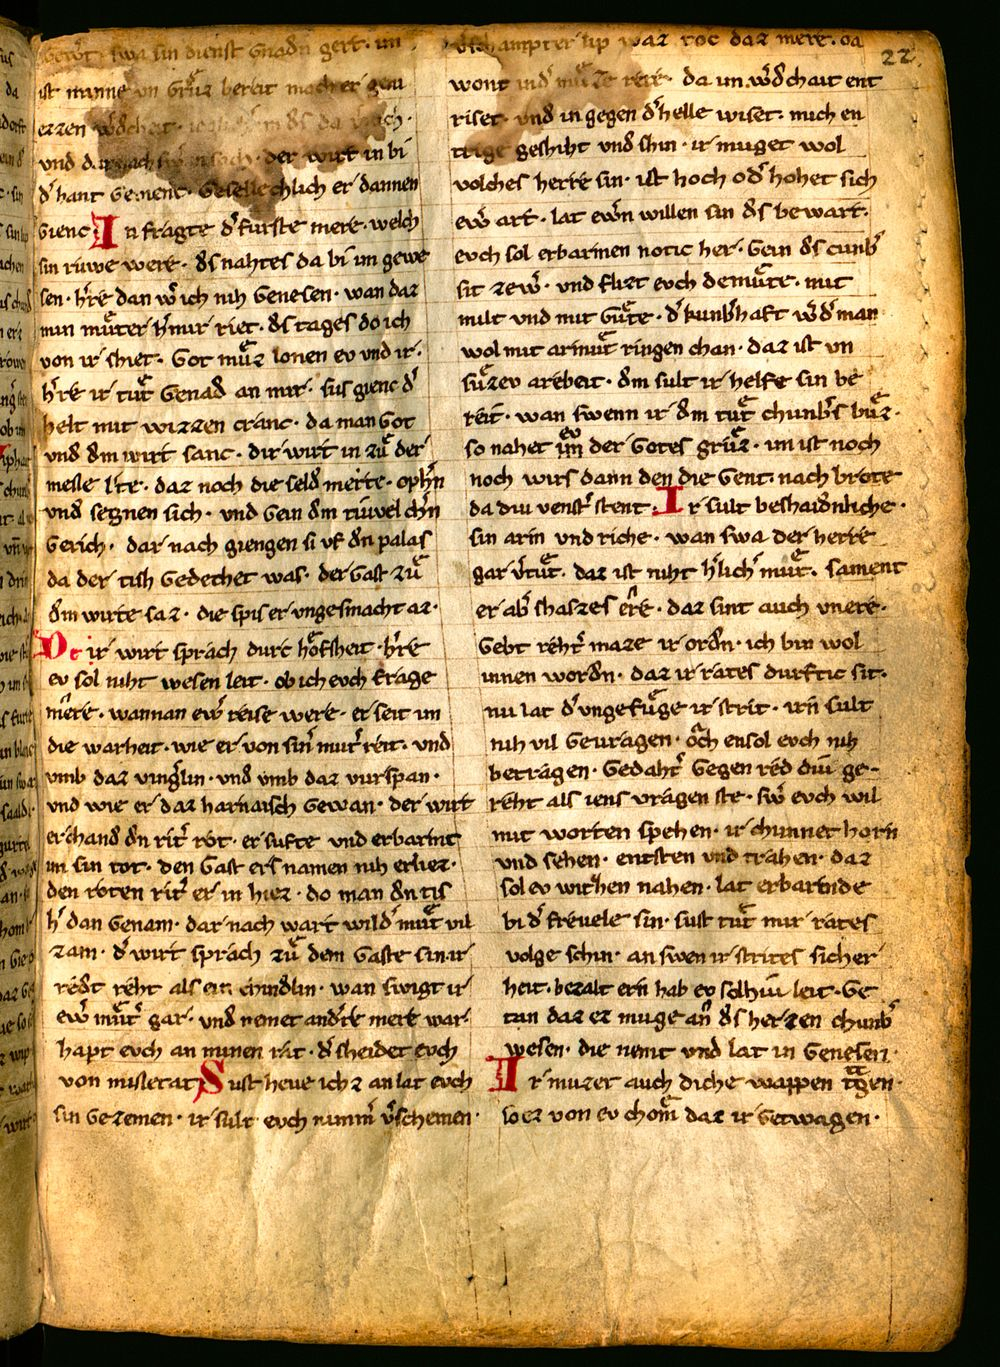 gew̍t · swa sin dienst gnadn̄ gert · im
ist minne vn̄ grůz bereit mach er geni
ezzen w̍dcheit
vnd darnach · der wirt in bi
d̍ hant genenc · Gesellechlich er dannen
Gienc In fragte d̍ furste mere · welch
sin ruwe were · ds nahtes da bi im gewe
sen · h̍re dan w̍ ich nih Genesen · wan daz
min můter h̍ mir riet · ds tages do ich
von ir shiet · Got můz lonen ev vnd ir ·
h̍re ir tůt Genad an mir · sus gienc d̍
helt mit wizzen cranc · da man Got
vnd dm wirt sanc · dir wirt in zů der
messe lr̍te · daz noch die seld̍ merte · oph̍n
vnd segnen sich · vnd Gein dm tiuvel ch̍n
Gerich · dar nach giengen si vf dn palas
da der tish Gedechet was · der Gast zů
dm wirte saz · die spis er vngesmacht az ·
Der wirt sprach durc hofsheit · h̍re
ev sol niht wesen leit · ob ich evch frage
m̍ere · wannan ew̍ reise were · er seit im
die warheit · wie er von sin̍ mut̍ reit · vnd
vmb daz ving̍lin · vnd vmb daz vurspan ·
vnd wie er daz harnaisch Gewan · der wirt
erchand dn rit̍ rot · er sufte vnd erbarmt
im sin tot · den Gast ers namen nih erliez ·
den roten rit̍ er in hiez · do man dn tis
h̍ dan Genam · dar nach wart wild̍ můt vil
zam · d̍ wirt sprach zů dem Gaste sin · ir
redt reht als ein chindlin · wan swigt ir
ew̍ můt̍ gar · vnd nemet and̍re mere war ·
hapt evch an minen rat · d̍ sheidet evch
von missetat Sust heve ich z an lat evch
sin Gezemen · ir sult evch nimm̍ v̍schemen ·
v̍shampter lip waz toc daz mere · da
wont in d̍ můze rere · da im w̍dchait ent
riset · vnd in gegen d̍ helle wiset · mich en
trige geshiht vnd shin · ir muget wol
volches herre sin · ist hoch od̍ hohet sich
ew̍ art · lat ew̍n willen sin ds bewart ·
evch sol erbarmen notic her · Gein ds cunb̍
sit zew̍ · vnd flizt evch demůte · mit
milt vnd mit Gůte · d̍ kunb̍haft w̍d̍ man
wol mit armůt ringen chan · daz ist vn
sůzev arebeit · dm sult ir helfe sin be
reit · wan swenn ir dm tůt chunb̍s bůz ·
so nahet iu der Gotes grůz · im ist noch
noch wirs dann den die Gent · nach brote
da diu venst̍ stent · Ir sult beshaidnliche ·
sin arm vnd riche · wan swa der herre
gar v̍tůt · daz ist niht h̍lich můt · sament
er ab̍ shatzes ere · daz sint auch vnere ·
Gebt reht̍ maze ir ordn̄ · ich bin wol
innen wordn̄ · daz ir rates durftic sit ·
nu lat d̍ vngefůge ir strit · irn sult
nih vil Gevragen · och ensol evch nih
betragen · Gedaht̍ Gegen red diu ge-
reht als iens vragen ste · sw̍ evch wil
mit worten spehen · ir chunnet horn
vnd sehen · entsten vnd trahen · daz
sol ev witzen nahen · lat erbarmde
bi d̍ frevele sin · sust tůt mir rates
volge schin · an swen ir strites sicher
heit · bezalt ern hab ev solhiu leit · Ge
tan daz ez muge an̄ ds herzen chunb̍
wesen · die nemt vnd lat in Genesen ·
Ir můzet auch diche wappen tragen ·
so ez von ev chom̄ daz ir Getwagen ·
22.